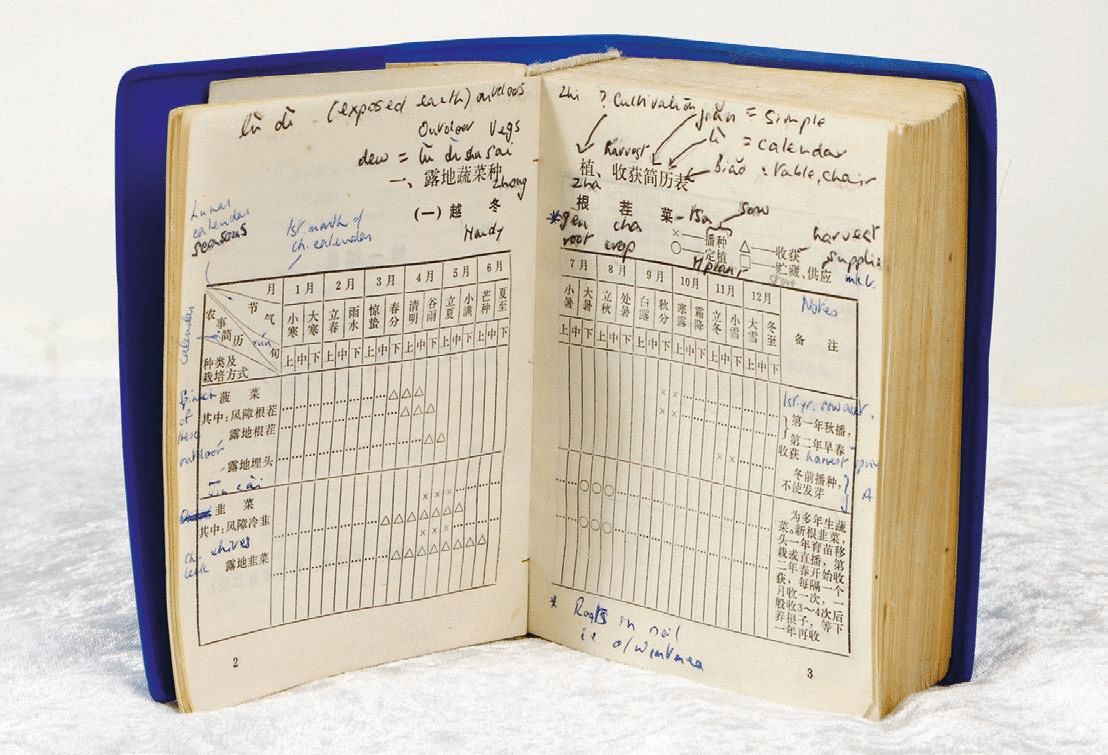 lù dì (exposed earth) outdoors
Outdoor Vegs
dew = lù dì shu sai
一、露地蔬菜种
zhong
(一) 越 冬
Hardy
lunar
calendar
seasons
1st. month of
ch. calendar
月 1月 2月 3月 4月 5月 6月
节 气
农 事 简 历
xún
旬
calendar
种类及
栽培方式
小寒 大寒 立春 雨水 惊蛰 春分 清明 谷雨 立夏 小满 芒种 夏至
上 中 下 上 中 下 上 中 下 上 中 下 上 中 下 上 中 下
菠 菜
其中：风障根茬
露地根茬
露地埋头
spinach
of
these
outdoor
韭 菜
其中：风障冷韭
露地韭菜
ch. chives
leek
2
zhi ? cultivation
jiǎn = simple
lì = calendar
biǎo : table, chair
harvest
植、收获简历表
zha
根 茬 菜
sow
*gen cha
root crop
×——播种 △——收获
○——定植 □——贮藏、供应
harvest
plant
7月 8月 9月 10月 11月 12月
Notes
备 注
小暑 大暑 立秋 处暑 白露 秋分 寒露 霜降 立冬 小雪 大雪 冬至
上 中 下 上 中 下 上 中 下 上 中 下 上 中 下 上 中 下
1st. yr. sow
第一年秋播，
第二年早春
收获
harvest
冬前播种，
不使发芽
A
为多年生蔬
菜。新根韭菜，
头一年育苗移
栽或直播，第
二年春开始收
获，每隔一个
月收一次，一
般收3～4次后
养根子，等下
一年再收
* Roots in soil
i.e. o/winter
3